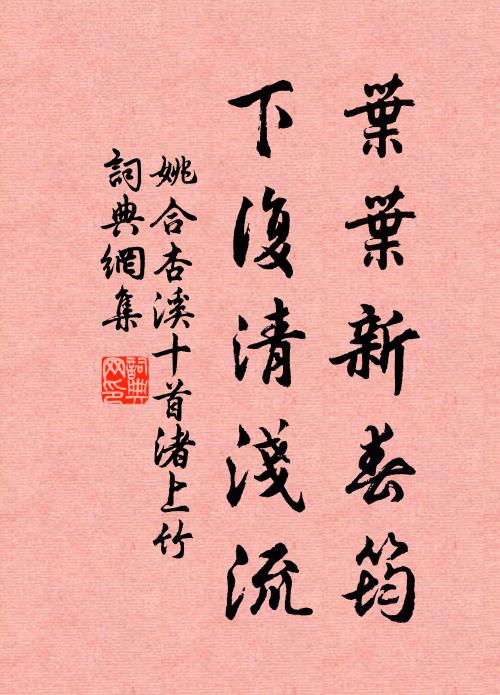 葉葉新春筠
下復清淺流
姚合杏溪十首渚上竹
詞典網集
詞典网印